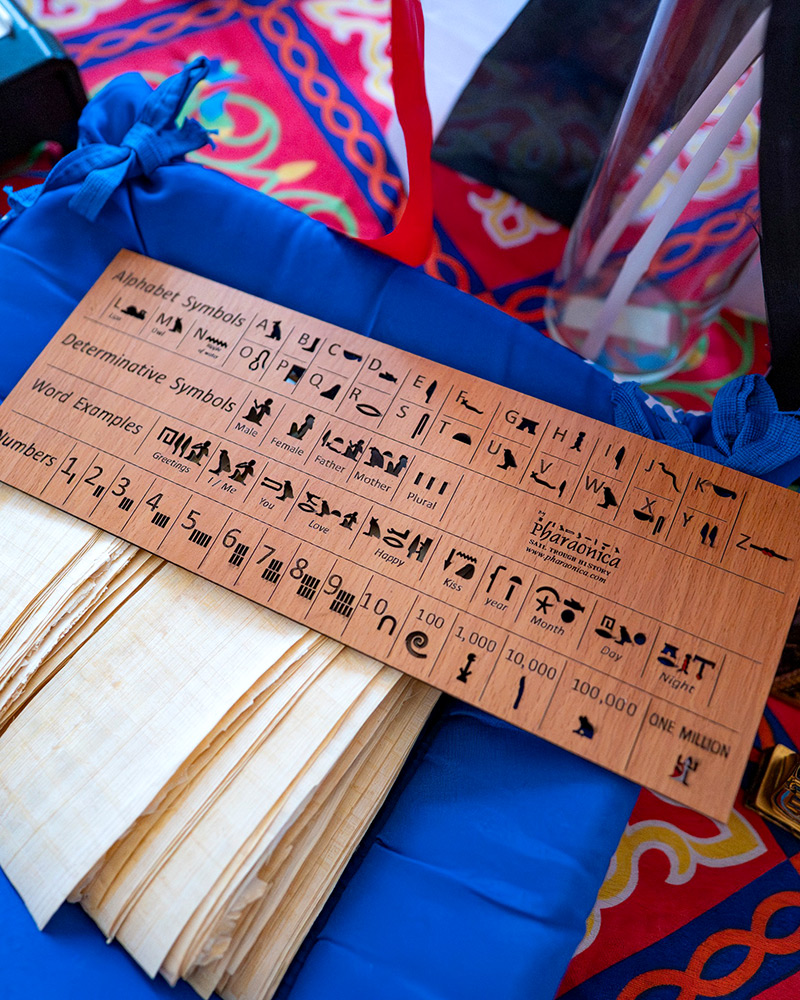 Alphabet Symbols A B C D E F G H I J K
L M N O P Q R S T U V W X Y Z
Lion Owl Ripple of water
Determinative Symbols
Male Female Father Mother Plural
Pharaonica
SAIL TROUGH HISTORY
www.pharaonica.com
Word Examples
Greetings I / Me You Love Happy Kiss year Month Day Night
Numbers 1 2 3 4 5 6 7 8 9 10 100 1,000 10,000 100,000 ONE MILLION